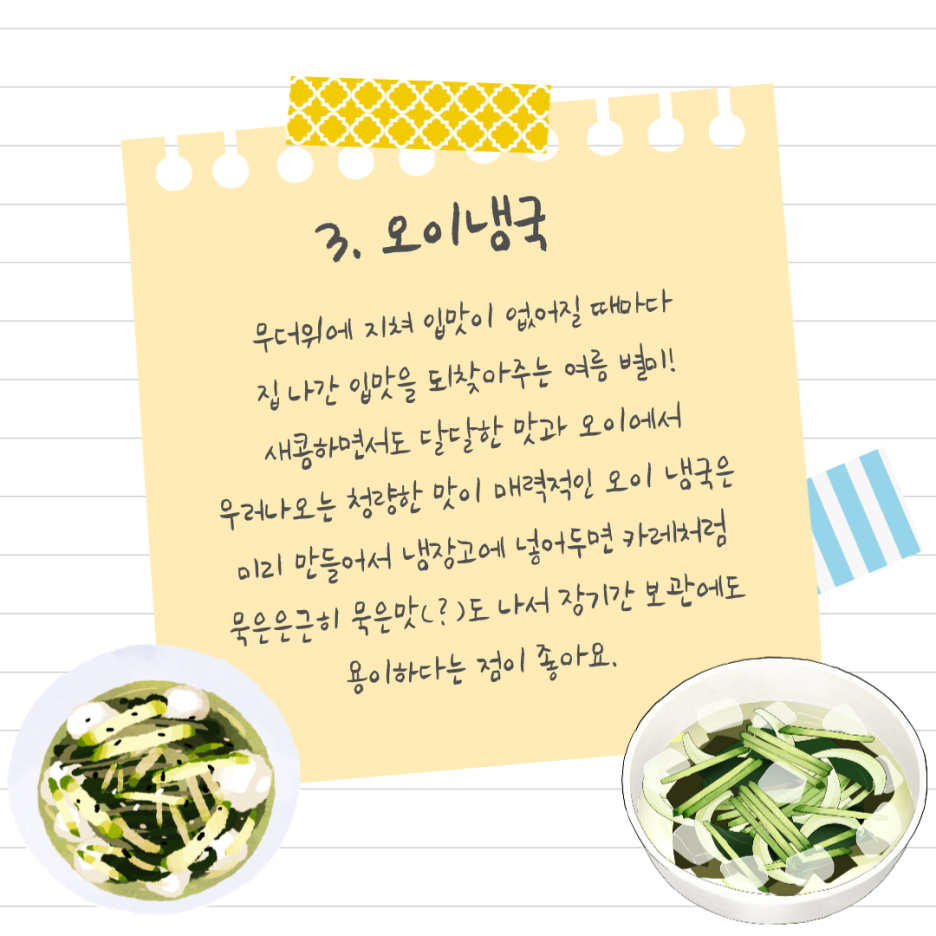 3. 오이냉국
무더위에 지쳐 입맛이 없어질 때마다
집 나간 입맛을 되찾아주는 여름 별미!
새콤하면서도 달달한 맛과 오이에서
우러나오는 청량한 맛이 매력적인 오이 냉국은
미리 만들어서 냉장고에 넣어두면 카레처럼
묵은은근히 묵은맛(?)도 나서 장기간 보관에도
용이하다는 점이 좋아요.